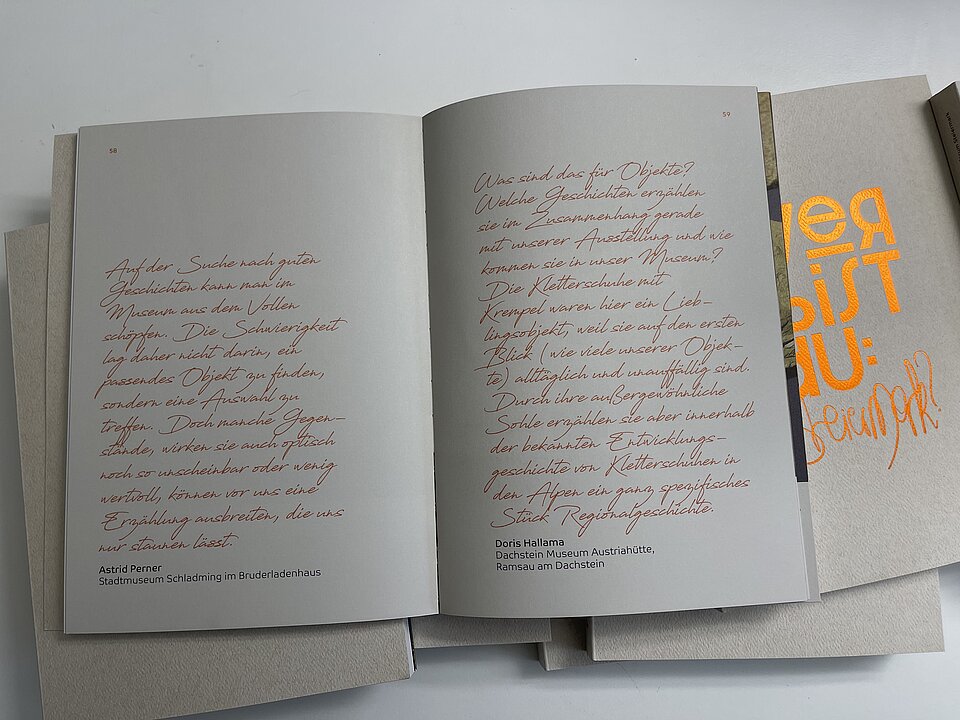 58
Auf der Suche nach guten
Geschichten kann man im
Museum aus dem Vollen
schöpfen. Die Schwierigkeit
lag daher nicht darin, ein
passendes Objekt zu finden,
sondern eine Auswahl zu
treffen. Doch manche Gegen-
stände, wirken sie auch optisch
noch so unscheinbar oder wenig
wertvoll, können vor uns eine
Erzählung ausbreiten, die uns
nur staunen lässt.
Astrid Perner
Stadtmuseum Schladming im Bruderladenhaus
59
Was sind das für Objekte?
Welche Geschichten erzählen
sie im Zusammenhang gerade
mit unserer Ausstellung und wie
kommen sie in unser Museum?
Die Kletterschuhe mit
Krempel waren hier ein Lieb-
lingsobjekt, weil sie auf den ersten
Blick (wie viele unserer Objek-
te) alltäglich und unauffällig sind.
Durch ihre außergewöhnliche
Sohle erzählen sie aber innerhalb
der bekannten Entwicklungs-
geschichte von Kletterschuhen in
den Alpen ein ganz spezifisches
Stück Regionalgeschichte.
Doris Hallama
Dachstein Museum Austriahütte,
Ramsau am Dachstein